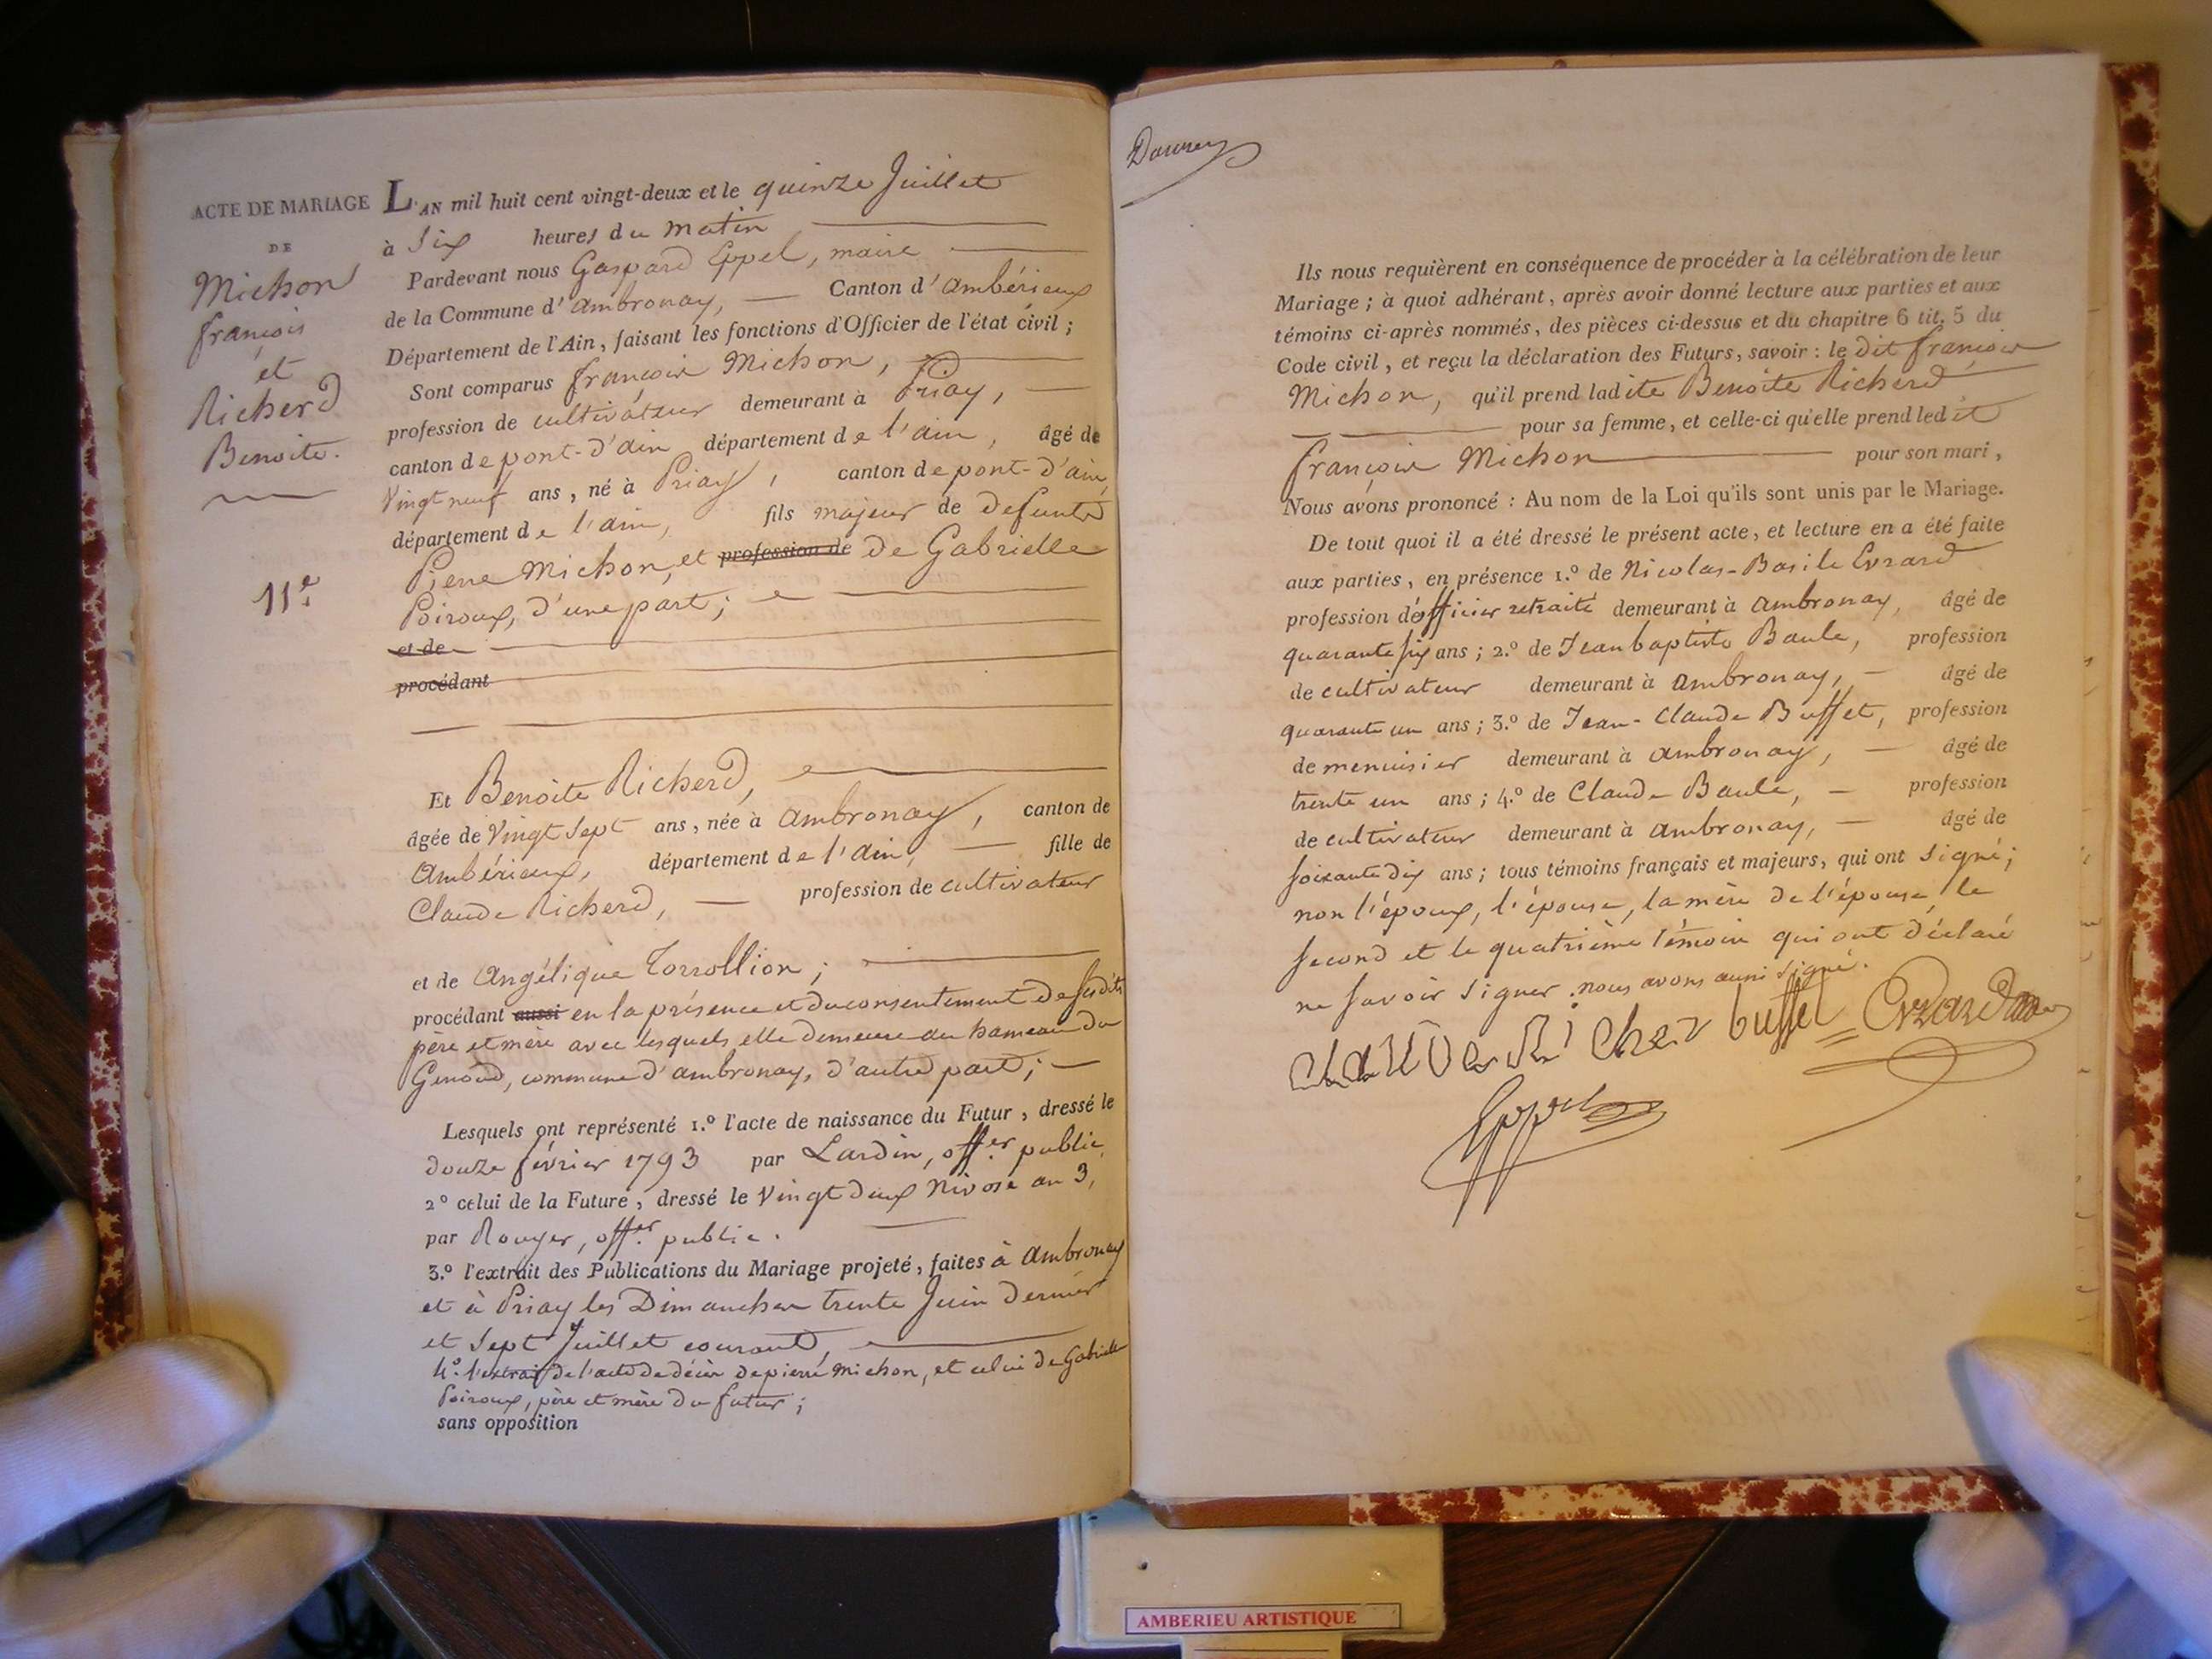 ACTE DE MARIAGE
DE
Michon
françois
et
Richerd
Benoite.
11e
L'AN mil huit cent vingt-deux et le quinze Juillet
à Six heures du matin
Pardevant nous Gaspard Eppel, maire
de la Commune d'ambronay, Canton d'ambérieux
Département de l'Ain, faisant les fonctions d'Officier de l'état civil ;
Sont comparus françois Michon,
profession de cultivateur demeurant à Priay,
canton de pont-d'ain département de l'ain, âgé de
Vingt neuf ans, né à Priay, canton de pont-d'ain,
département de l'ain, fils majeur de defunts
Pierre Michon, et profession de de Gabrielle
Poiroux, d'une part ;
et de
procédant
Et Benoite Richerd,
âgée de Vingt Sept ans, née à ambronay, canton de
Ambérieux, département de l'ain, fille de
Claude Richerd, profession de cultivateur
et de Angélique Torrollion ;
procédant aussi en la présence et du consentement de sesdits
père et mère avec lesquels elle demeure au hameau du
Genoud, commune d'ambronay, d'autre part ;
Lesquels ont représenté 1.º l'acte de naissance du Futur, dressé le
douze février 1793 par Lardin, off.er public,
2º celui de la Future, dressé le Vingt deux Nivose an 3,
par Rouyer, off.er public.
3.º l'extrait des Publications du Mariage projeté, faites à Ambronay
et à Priay les Dimanches trente Juin dernier
et Sept Juillet courant,
4.º l'extrait de l'acte de décès de pierre Michon, et celui de Gabrielle
Poiroux, père et mère du futur ;
sans opposition
Ils nous requièrent en conséquence de procéder à la célébration de leur
Mariage ; à quoi adhérant, après avoir donné lecture aux parties et aux
témoins ci-après nommés, des pièces ci-dessus et du chapitre 6 tit. 5 du
Code civil, et reçu la déclaration des Futurs, savoir : le dit françois
Michon, qu'il prend ladite Benoite Richerd
pour sa femme, et celle-ci qu'elle prend ledit
françois Michon pour son mari,
Nous avons prononcé : Au nom de la Loi qu'ils sont unis par le Mariage.
De tout quoi il a été dressé le présent acte, et lecture en a été faite
aux parties, en présence 1.º de Nicolas-Basile Evrard
profession d'officier retraité demeurant à ambronay, âgé de
quarante six ans ; 2.º de Jean baptiste Baule, profession
de cultivateur demeurant à ambronay, âgé de
quarante un ans ; 3.º de Jean-Claude Buffet, profession
de menuisier demeurant à ambronay, âgé de
trente un ans ; 4.º de Claude Baule, profession
de cultivateur demeurant à ambronay, âgé de
soixante dix ans ; tous témoins français et majeurs, qui ont signé ;
non l'époux, l'épouse, la mère de l'épouse, le
second et le quatrième témoin qui ont déclaré
ne savoir signer. nous avons aussi signé.
claude Richer buffet Evrard
Eppel
AMBERIEU ARTISTIQUE